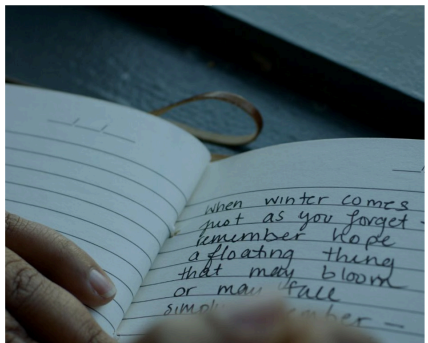 when winter comes
just as you forget -
remember hope
a floating thing
that may bloom
or may fall
simply